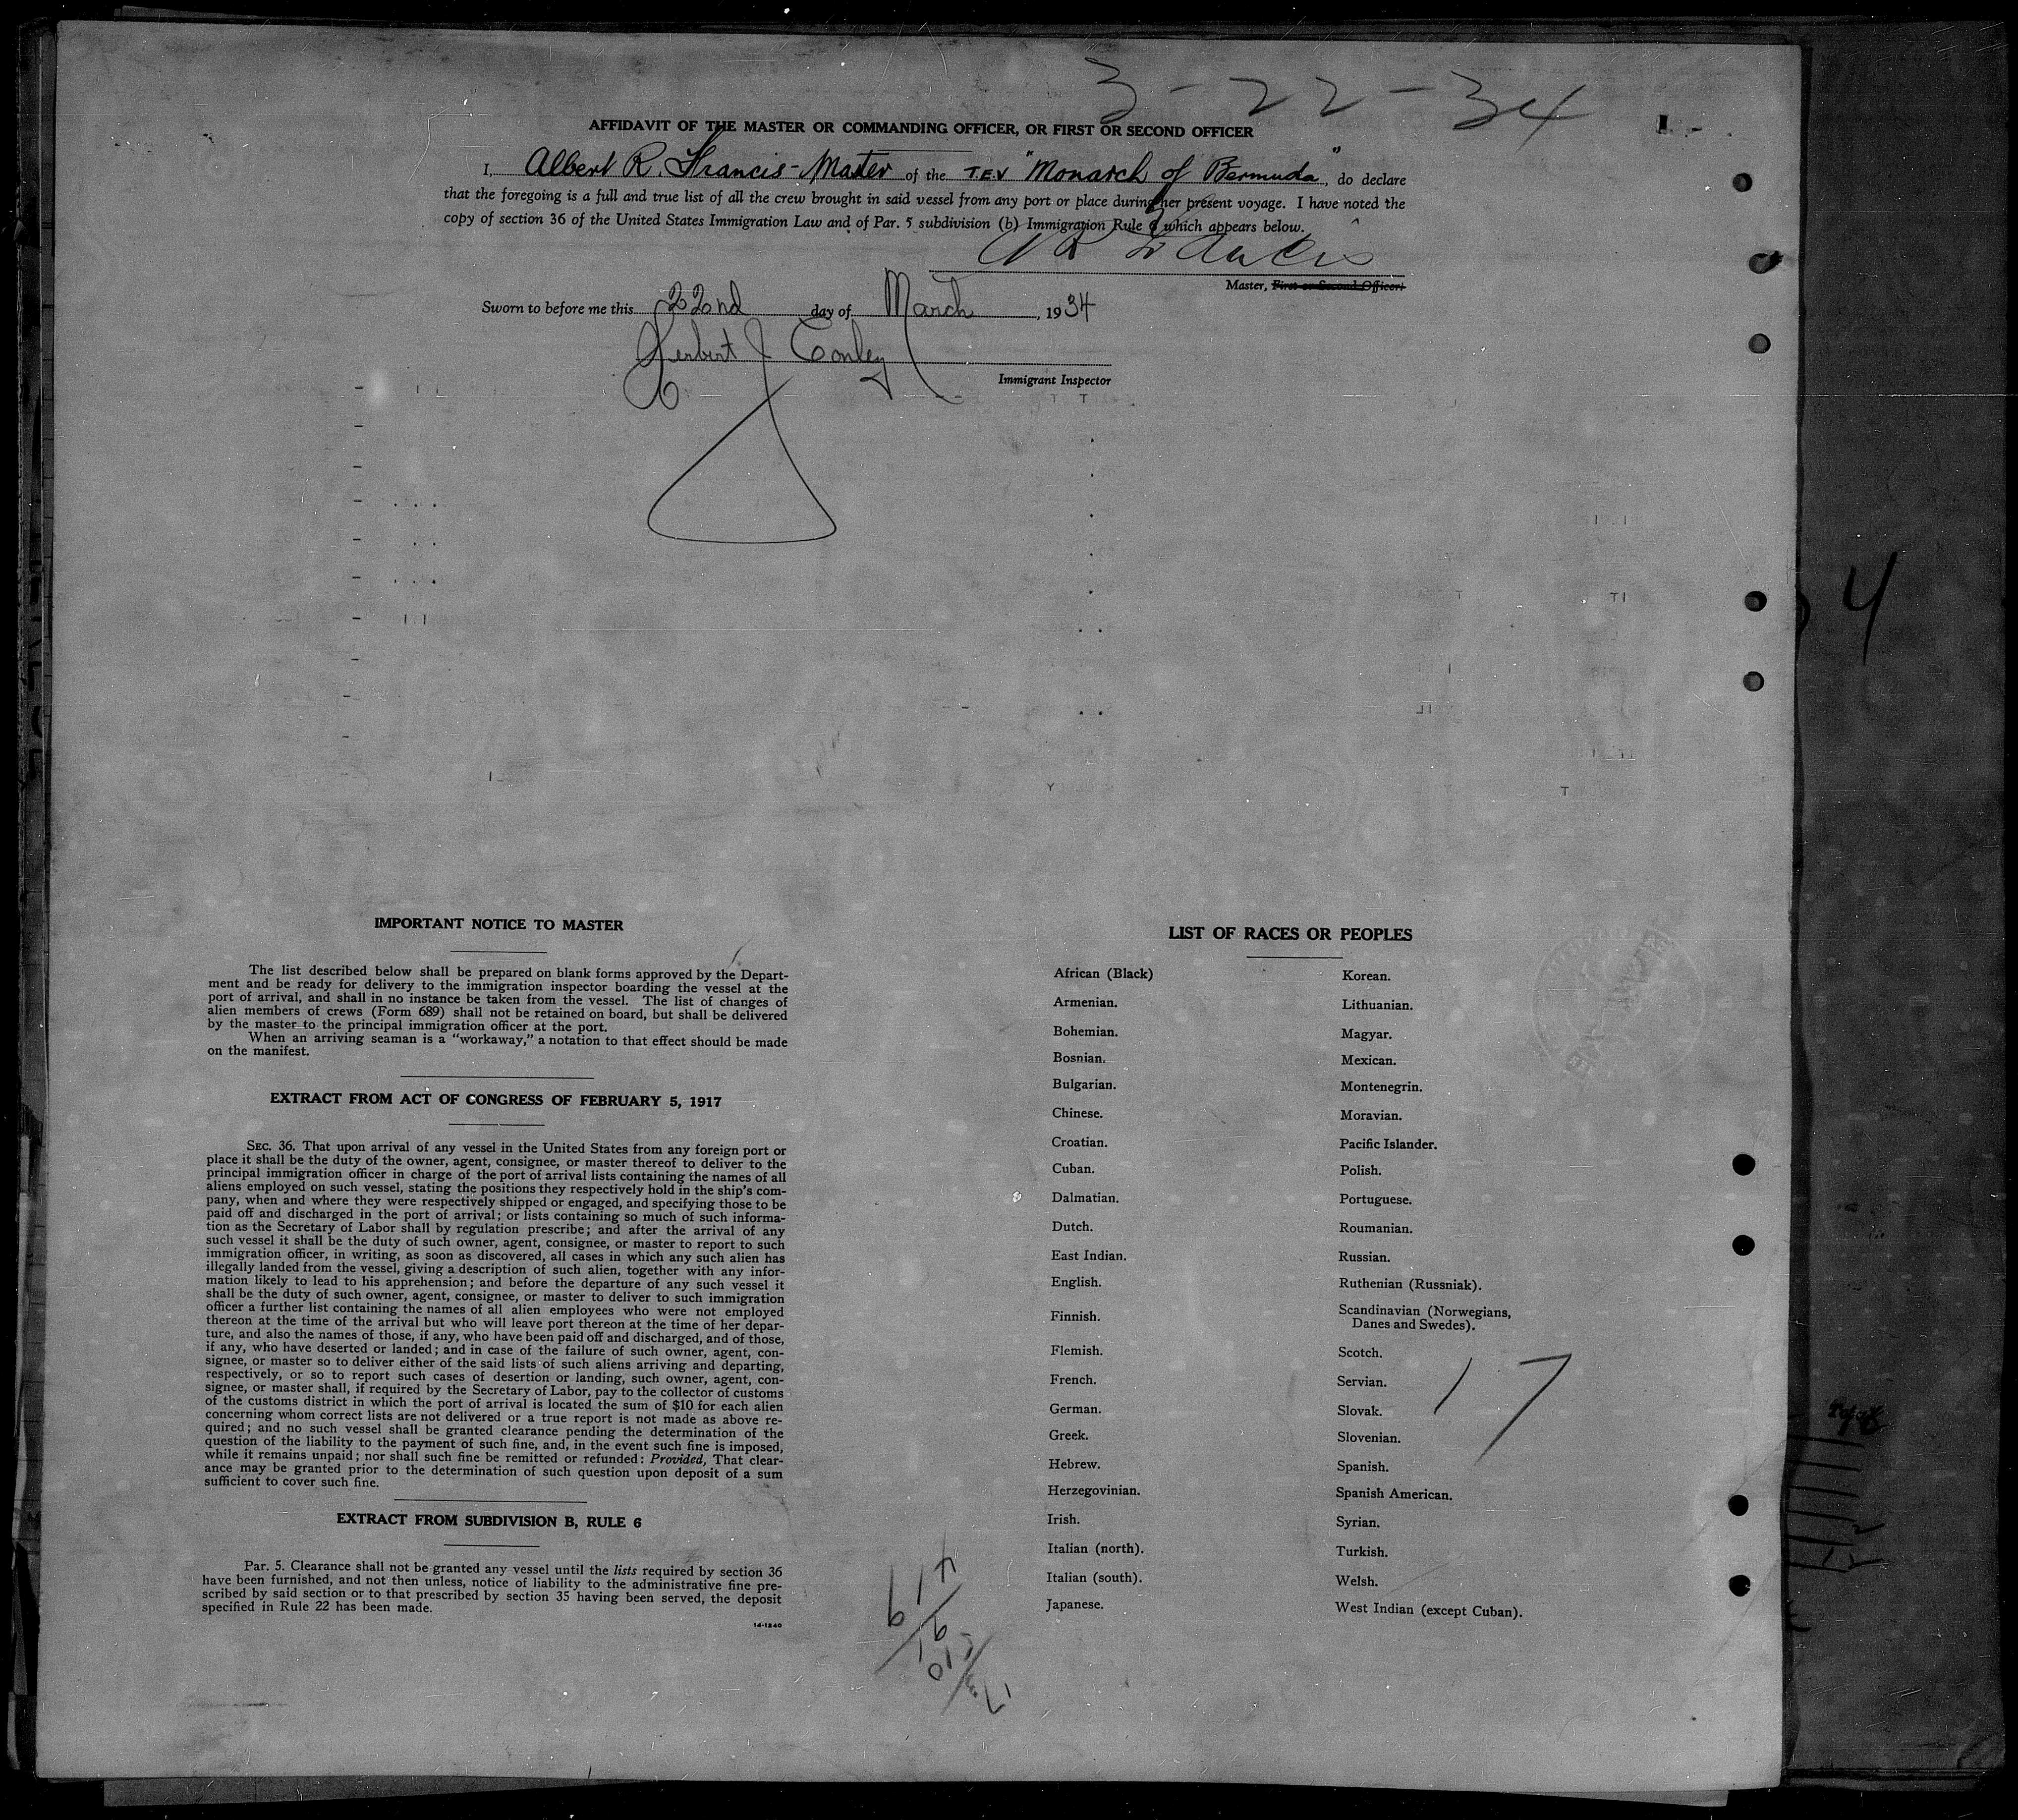 3-22-34
AFFIDAVIT OF THE MASTER OR COMMANDING OFFICER, OR FIRST OR SECOND OFFICER
I, Albert R. Francis - Master of the T.E.V "Monarch of Bermuda", do declare
that the foregoing is a full and true list of all the crew brought in said vessel from any port or place during her present voyage. I have noted the
copy of section 36 of the United States Immigration Law and of Par. 5 subdivision (b) Immigration Rule 6 which appears below.
A R Francis
Master, First or Second Officer.
Sworn to before me this 22nd day of March, 1934
Herbert J Conley
Immigrant Inspector
4
IMPORTANT NOTICE TO MASTER
The list described below shall be prepared on blank forms approved by the Depart-
ment and be ready for delivery to the immigration inspector boarding the vessel at the
port of arrival, and shall in no instance be taken from the vessel. The list of changes of
alien members of crews (Form 689) shall not be retained on board, but shall be delivered
by the master to the principal immigration officer at the port.
When an arriving seaman is a "workaway," a notation to that effect should be made
on the manifest.
EXTRACT FROM ACT OF CONGRESS OF FEBRUARY 5, 1917
SEC. 36. That upon arrival of any vessel in the United States from any foreign port or
place it shall be the duty of the owner, agent, consignee, or master thereof to deliver to the
principal immigration officer in charge of the port of arrival lists containing the names of all
aliens employed on such vessel, stating the positions they respectively hold in the ship's com-
pany, when and where they were respectively shipped or engaged, and specifying those to be
paid off and discharged in the port of arrival; or lists containing so much of such informa-
tion as the Secretary of Labor shall by regulation prescribe; and after the arrival of any
such vessel it shall be the duty of such owner, agent, consignee, or master to report to such
immigration officer, in writing, as soon as discovered, all cases in which any such alien has
illegally landed from the vessel, giving a description of such alien, together with any infor-
mation likely to lead to his apprehension; and before the departure of any such vessel it
shall be the duty of such owner, agent, consignee, or master to deliver to such immigration
officer a further list containing the names of all alien employees who were not employed
thereon at the time of the arrival but who will leave port thereon at the time of her depar-
ture, and also the names of those, if any, who have been paid off and discharged, and of those,
if any, who have deserted or landed; and in case of the failure of such owner, agent, con-
signee, or master so to deliver either of the said lists of such aliens arriving and departing,
respectively, or so to report such cases of desertion or landing, such owner, agent, con-
signee, or master shall, if required by the Secretary of Labor, pay to the collector of customs
of the customs district in which the port of arrival is located the sum of $10 for each alien
concerning whom correct lists are not delivered or a true report is not made as above re-
quired; and no such vessel shall be granted clearance pending the determination of the
question of the liability to the payment of such fine, and, in the event such fine is imposed,
while it remains unpaid; nor shall such fine be remitted or refunded: Provided, That clear-
ance may be granted prior to the determination of such question upon deposit of a sum
sufficient to cover such fine.
EXTRACT FROM SUBDIVISION B, RULE 6
Par. 5. Clearance shall not be granted any vessel until the lists required by section 36
have been furnished, and not then unless, notice of liability to the administrative fine pre-
scribed by said section or to that prescribed by section 35 having been served, the deposit
specified in Rule 22 has been made.
14-1240
LIST OF RACES OR PEOPLES
African (Black)
Armenian.
Bohemian.
Bosnian.
Bulgarian.
Chinese.
Croatian.
Cuban.
Dalmatian.
Dutch.
East Indian.
English.
Finnish.
Flemish.
French.
German.
Greek.
Hebrew.
Herzegovinian.
Irish.
Italian (north).
Italian (south).
Japanese.
Korean.
Lithuanian.
Magyar.
Mexican.
Montenegrin.
Moravian.
Pacific Islander.
Polish.
Portuguese.
Roumanian.
Russian.
Ruthenian (Russniak).
Scandinavian (Norwegians,
Danes and Swedes).
Scotch.
Servian.
Slovak.
Slovenian.
Spanish.
Spanish American.
Syrian.
Turkish.
Welsh.
West Indian (except Cuban).
17